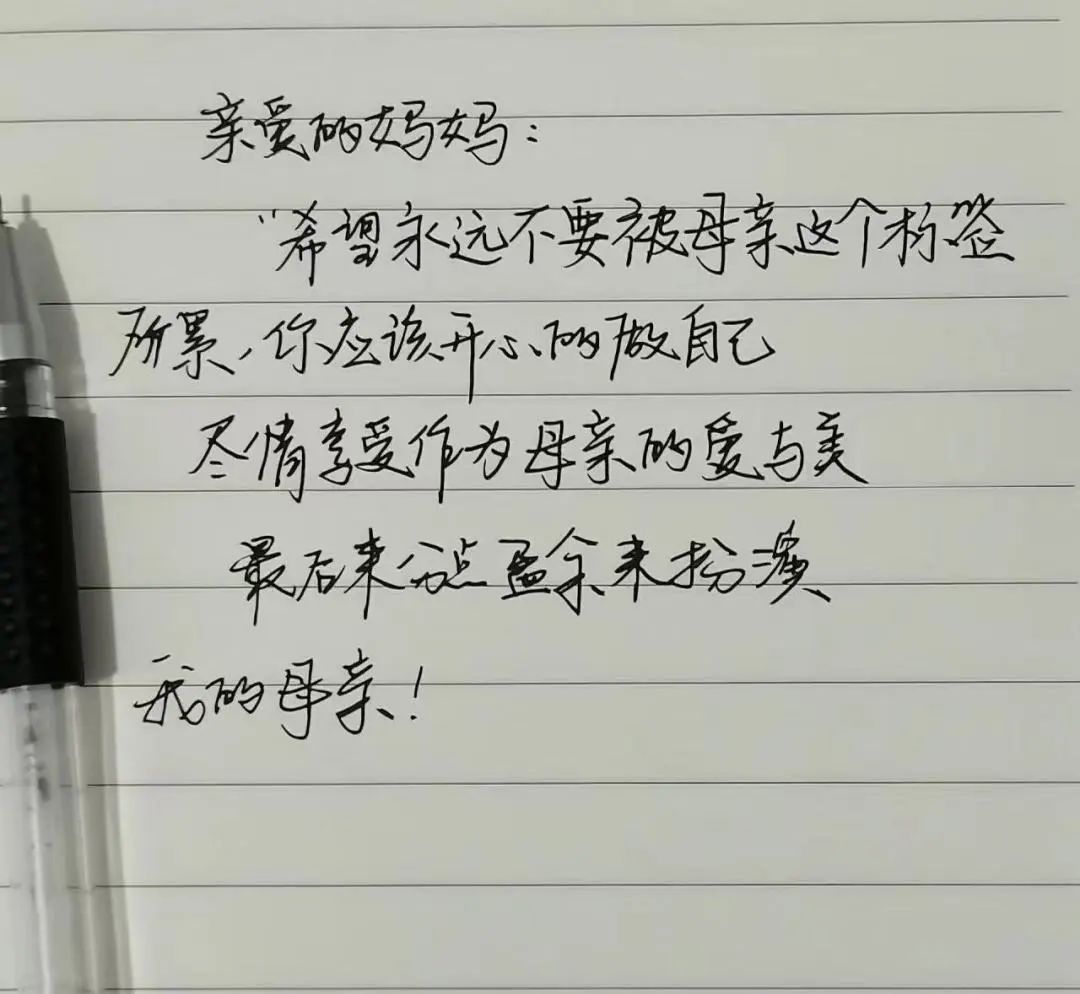 亲爱的妈妈：
“希望永远不要被母亲这个标签
所累，你应该开心的做自己
尽情享受作为母亲的爱与美
最后来分点盈余来扮演
我的母亲！